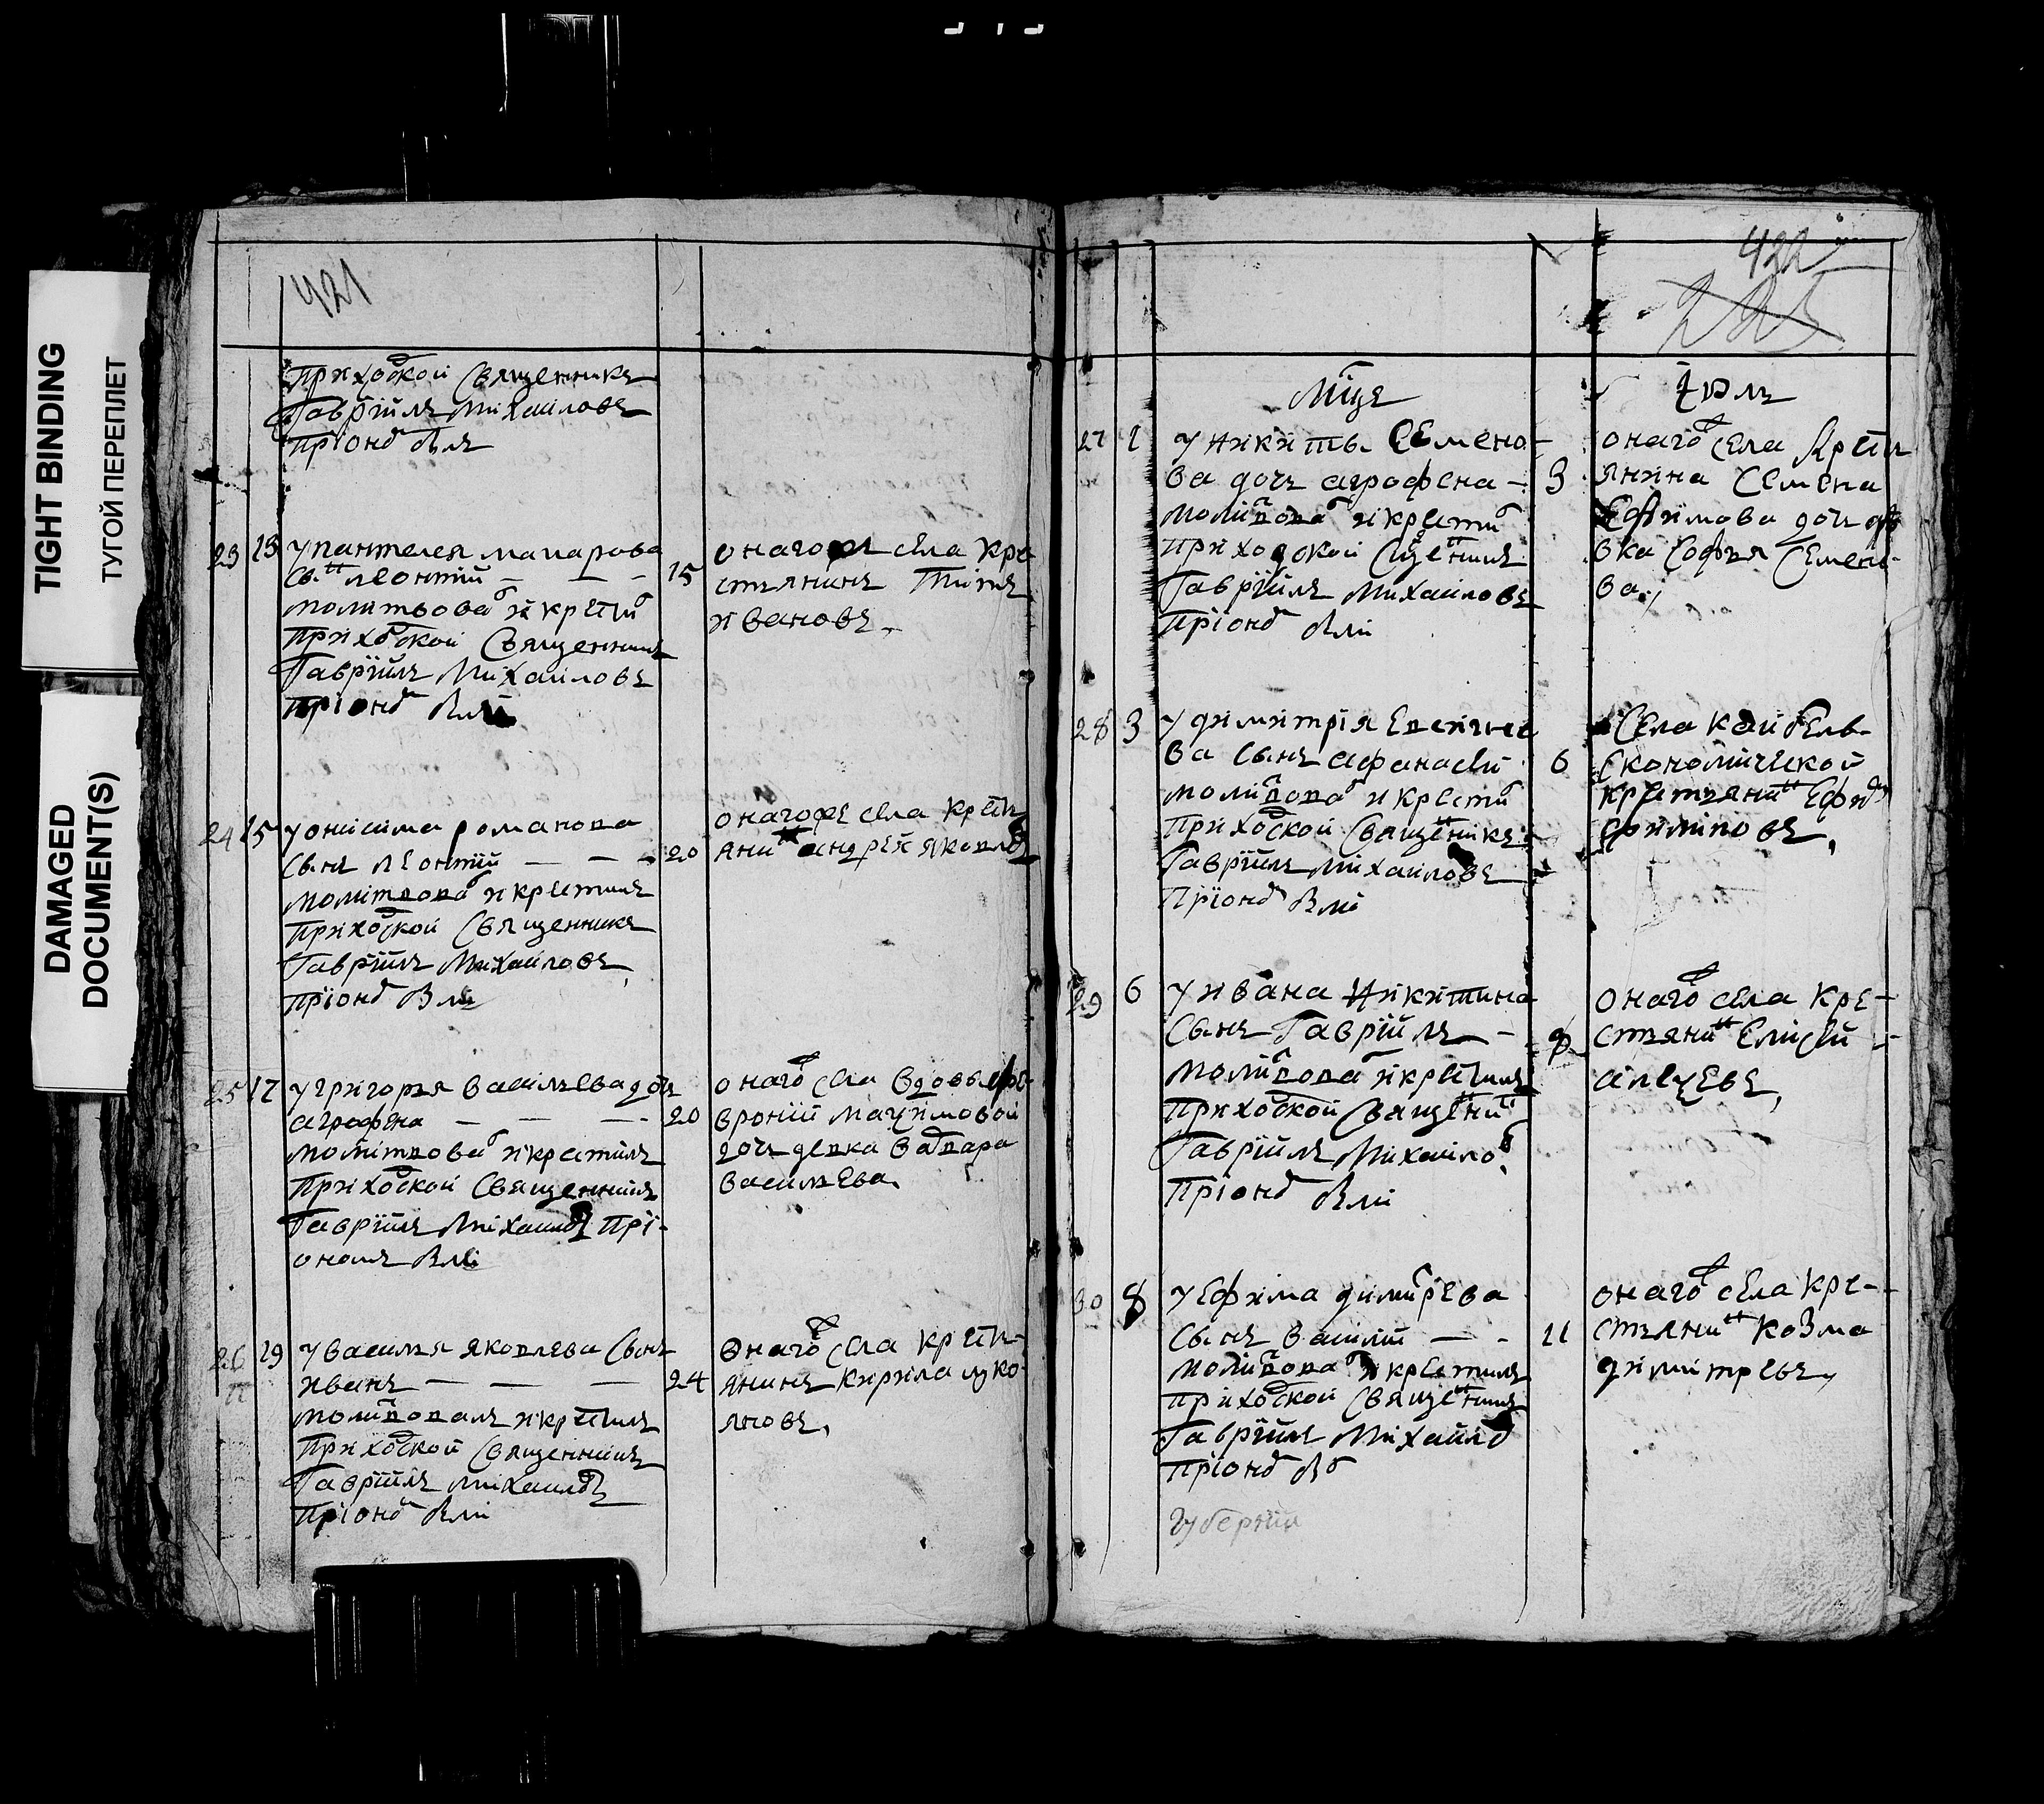 TIGHT BINDING
ТУГОЙ ПЕРЕПЛЕТ
DAMAGED
DOCUMENT(S)
421
приходской священникъ
Гаврiилъ Михаиловъ
23 13 у пантелея макарова
сынъ леонтiй
молитвовал и крести
приходской священникъ
Гаврiилъ Михаиловъ
15 онагоже села кре
стьянинъ Титъ
ивановъ
24 15 у онисима романова
сынъ леонтiй
молитвовал и крестилъ
приходской священникъ
Гаврiилъ Михаиловъ
20 онагоже села крест
янин андрей яковлев
25 17 у григорья васильева доч
агрофена
молитвовал и крестилъ
приходской священникъ
Гаврiилъ Михаилов при
20 онагож села вдовы фе
вронiи
дочь девка варвара
васильева
26 19 у василья яковлева сынъ
иванъ
молитвовалъ и крестилъ
приходской священникъ
Гаврiилъ михаиловъ
24 онагож села крест
янинъ кирила луко
яновъ
422
225
Мцъ
27 1 у никиты семено
ва дочь агрофена
молитвовал и крестил
приходской сщенникъ
Гаврiилъ Михаиловъ
3 онагож села крест
янина семена
Ефимова дочь де
вка софья семено
ва
28 3 у димитрiя
ва сынъ афанасей
молитвовал и крестил
приходской священникъ
Гаврiилъ михаиловъ
6 села кайбелъ
економической
крестьянин
29 6 у ивана никитина
сынъ Гаврiилъ
молитвовал и крестилъ
приходской священник
Гаврiилъ Михаилов
онагож села кре
стьянин Елисей
30 8 у Ефима димитрева
сынъ василiй
молитвовал и крестилъ
приходской священникъ
Гаврiилъ Михаилов
11 онагож села кре
стьянин козма
димитревъ
губернiи